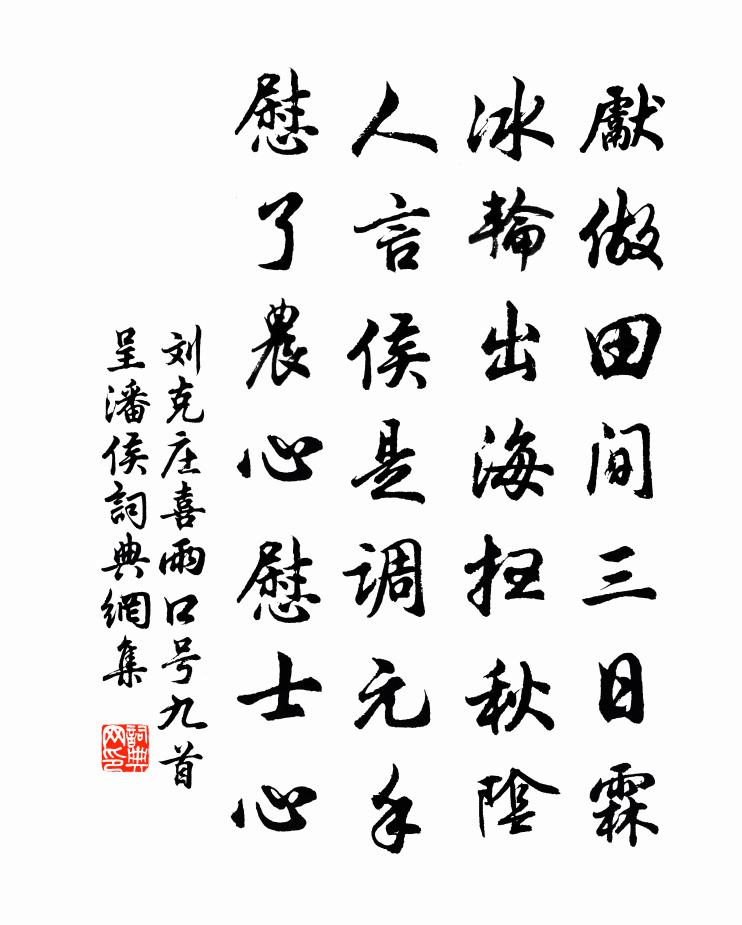 獻做田间三日霖
冰輪出海扫秋陰
人言侯是调元手
慰了農心慰士心
刘克庄喜雨口号九首
呈潘侯詞典網集
詞典网印